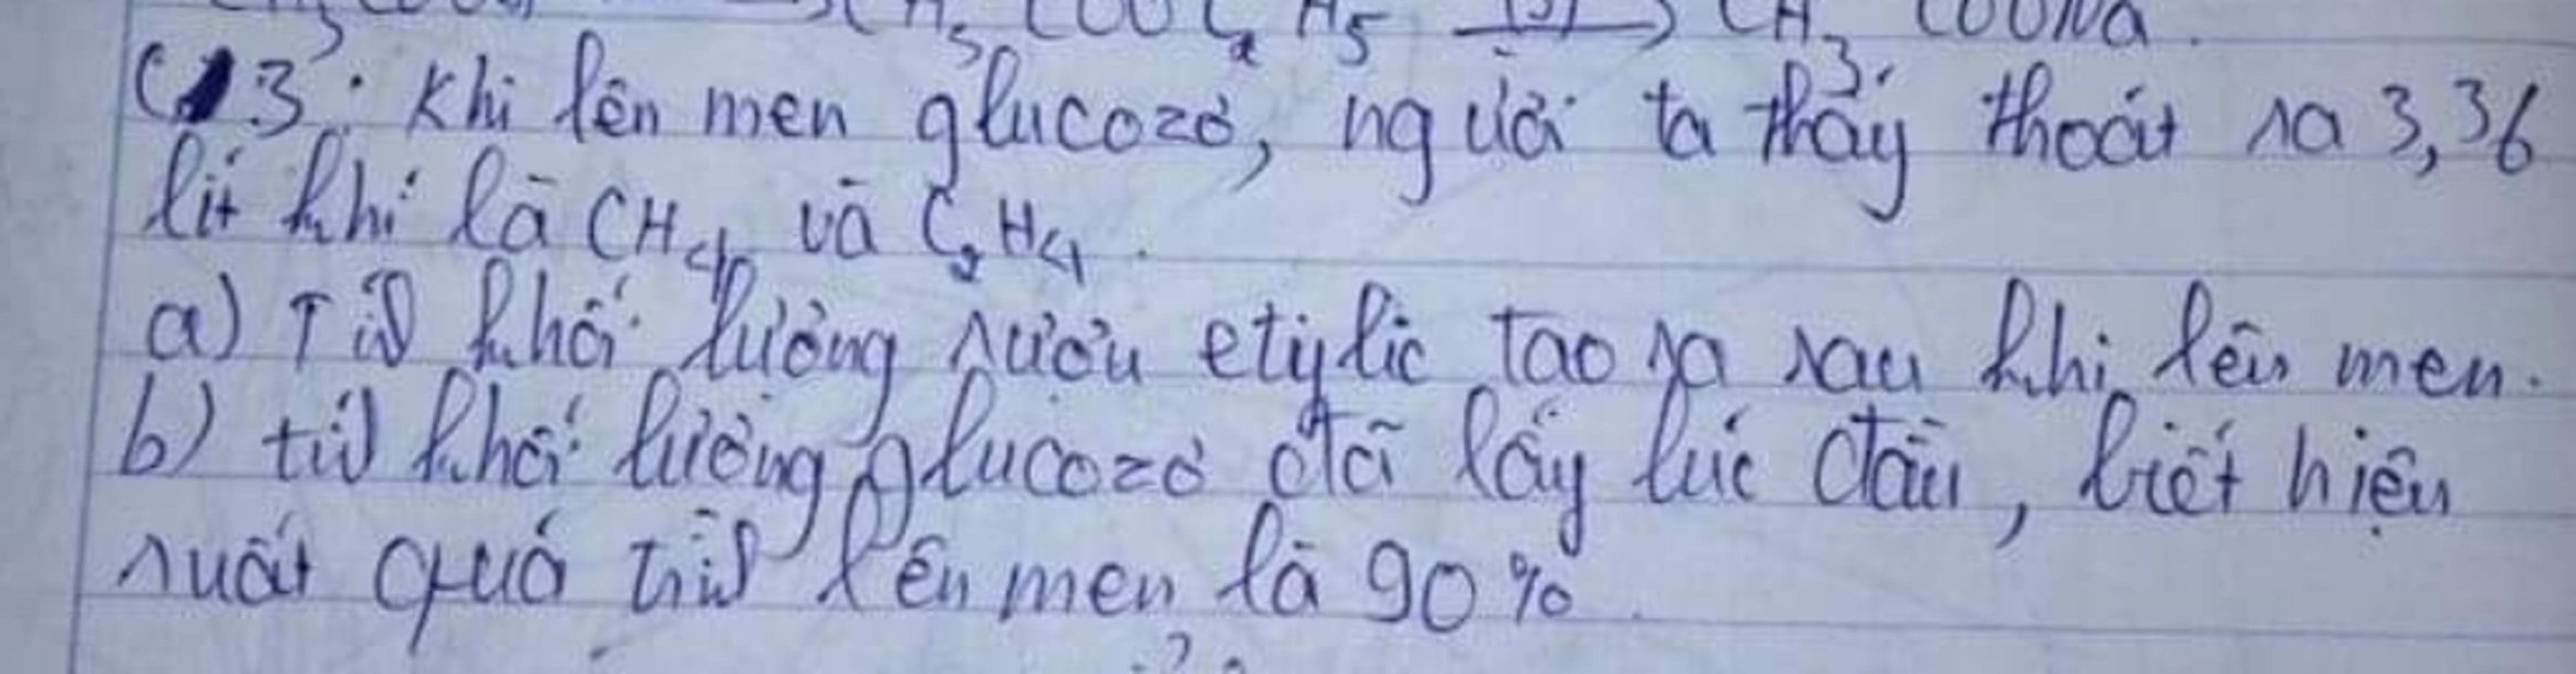 CH₃ COOC₂ H₅ (3)→ CH₃ COONa.
C 3: Khi lên men glucozơ, người ta thấy thoát ra 3,36
lít khí là CH₄ và C₂H₄.
a) Tíh khối lượng rượu etylic tạo ra sau khi lên men.
b) tíh khối lượng glucozơ đã lấy lúc đầu, biết hiệu
suất quá trìh lên men là 90%.